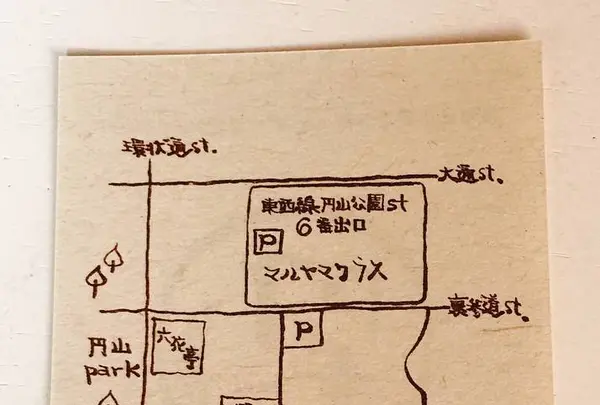 環状通st.
大通st.
東西線円山公園st
6番出口
P
マルヤマクラス
裏参道st.
P
六花亭
円山
park